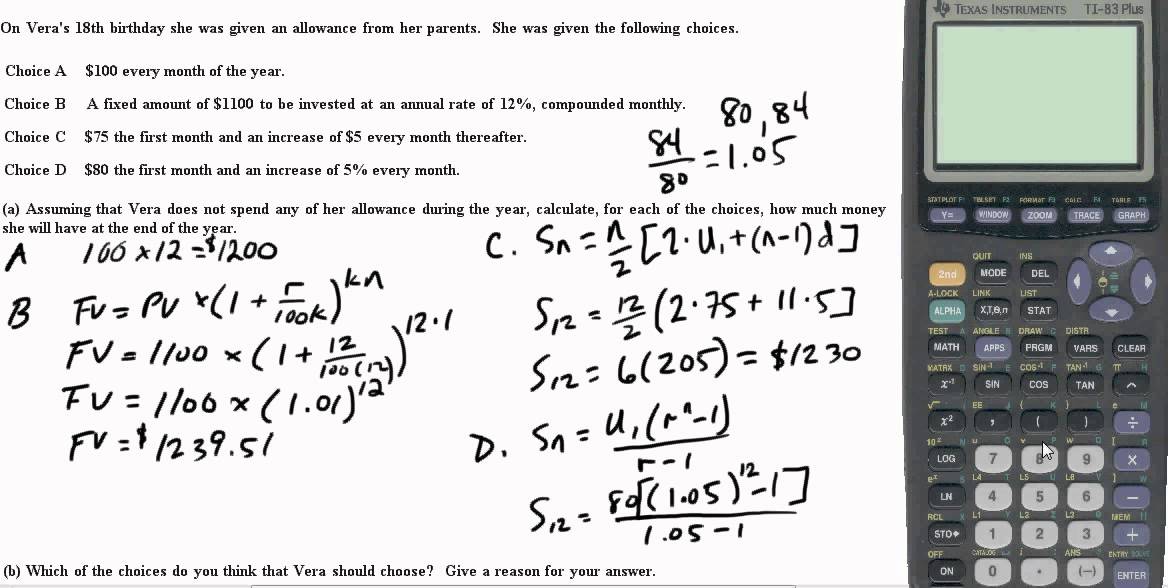 On Vera's 18th birthday she was given an allowance from her parents. She was given the following choices.
Choice A $100 every month of the year.
Choice B A fixed amount of $1100 to be invested at an annual rate of 12%, compounded monthly.
Choice C $75 the first month and an increase of $5 every month thereafter.
Choice D $80 the first month and an increase of 5% every month.
80, 84
84/80 = 1.05
(a) Assuming that Vera does not spend any of her allowance during the year, calculate, for each of the choices, how much money
she will have at the end of the year.
A 100 × 12 = $1200
B FV = PV × (1 + r/100k)^kn
FV = 1100 × (1 + 12/100(12))^12·1
FV = 1100 × (1.01)^12
FV = $1239.51
C. Sn = n/2 [2·u₁ + (n-1)d]
S₁₂ = 12/2 (2·75 + 11·5]
S₁₂ = 6(205) = $1230
D. Sn = u₁(r^n - 1)/r - 1
S₁₂ = 80[(1.05)^12 - 1]/1.05 - 1
(b) Which of the choices do you think that Vera should choose? Give a reason for your answer.
TEXAS INSTRUMENTS TI-83 Plus
STAT PLOT F1 TBLSET F2 FORMAT F3 CALC F4 TABLE F5
Y= WINDOW ZOOM TRACE GRAPH
QUIT INS
2nd MODE DEL
A-LOCK LINK LIST
ALPHA X,T,θ,n STAT
TEST A ANGLE B DRAW C DISTR
MATH APPS PRGM VARS CLEAR
MATRX D SIN⁻¹ E COS⁻¹ F TAN⁻¹ G π H
x⁻¹ SIN COS TAN ^
√ I EE J { K } L e M
x² , ( ) ÷
10ˣ N u O v P w Q [ R
LOG 7 8 9 ×
eˣ S L4 T L5 U L6 V ] W
LN 4 5 6 −
RCL X L1 Y L2 Z L3 θ MEM "
STO▸ 1 2 3 +
OFF CATALOG i : ANS ? ENTRY SOLVE
ON 0 . (−) ENTER